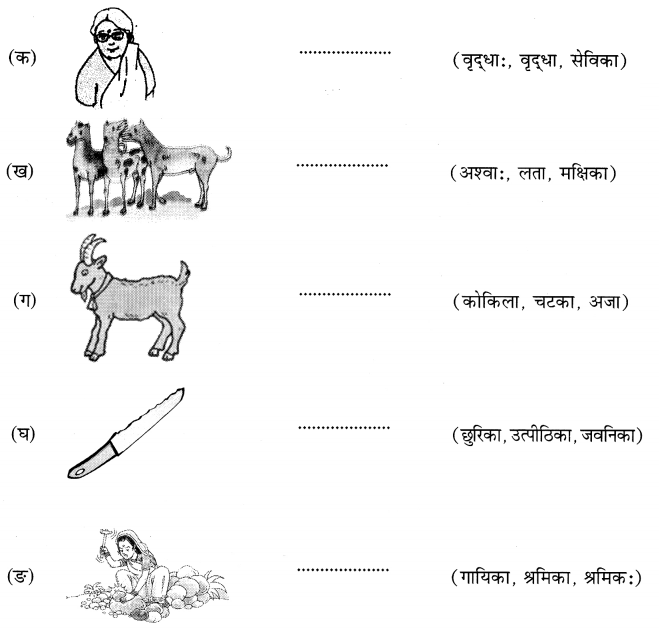 (क) ..................... (वृद्धाः, वृद्धा, सेविका)
(ख) ..................... (अश्वाः, लता, मक्षिका)
(ग) ..................... (कोकिला, चटका, अजा)
(घ) ..................... (छुरिका, उत्पीठिका, जवनिका)
(ङ) ..................... (गायिका, श्रमिका, श्रमिकः)